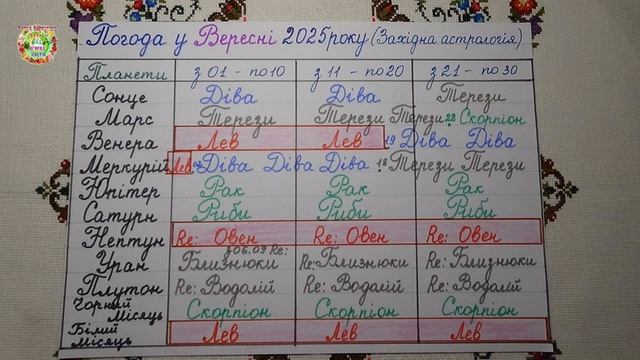 Погода у Вересні 2025 року (Західна астрологія)
Планети з 01 - по 10 з 11 - по 20 з 21 - по 30
Сонце Діва Діва Терези
Марс Терези Терези Терези 22 Скорпіон
Венера Лев Лев 19 Діва Діва
Меркурій Лев Діва Діва Діва 18 Терези Терези
Юпітер Рак Рак Рак
Сатурн Риби Риби Риби
Нептун Re: Овен Re: Овен Re: Овен
з 06.09 Re:
Уран Близнюки Re: Близнюки Re: Близнюки
Плутон Re: Водолій Re: Водолій Re: Водолій
Чорний
Місяць Скорпіон Скорпіон Скорпіон
Білий
Місяць Лев Лев Лев